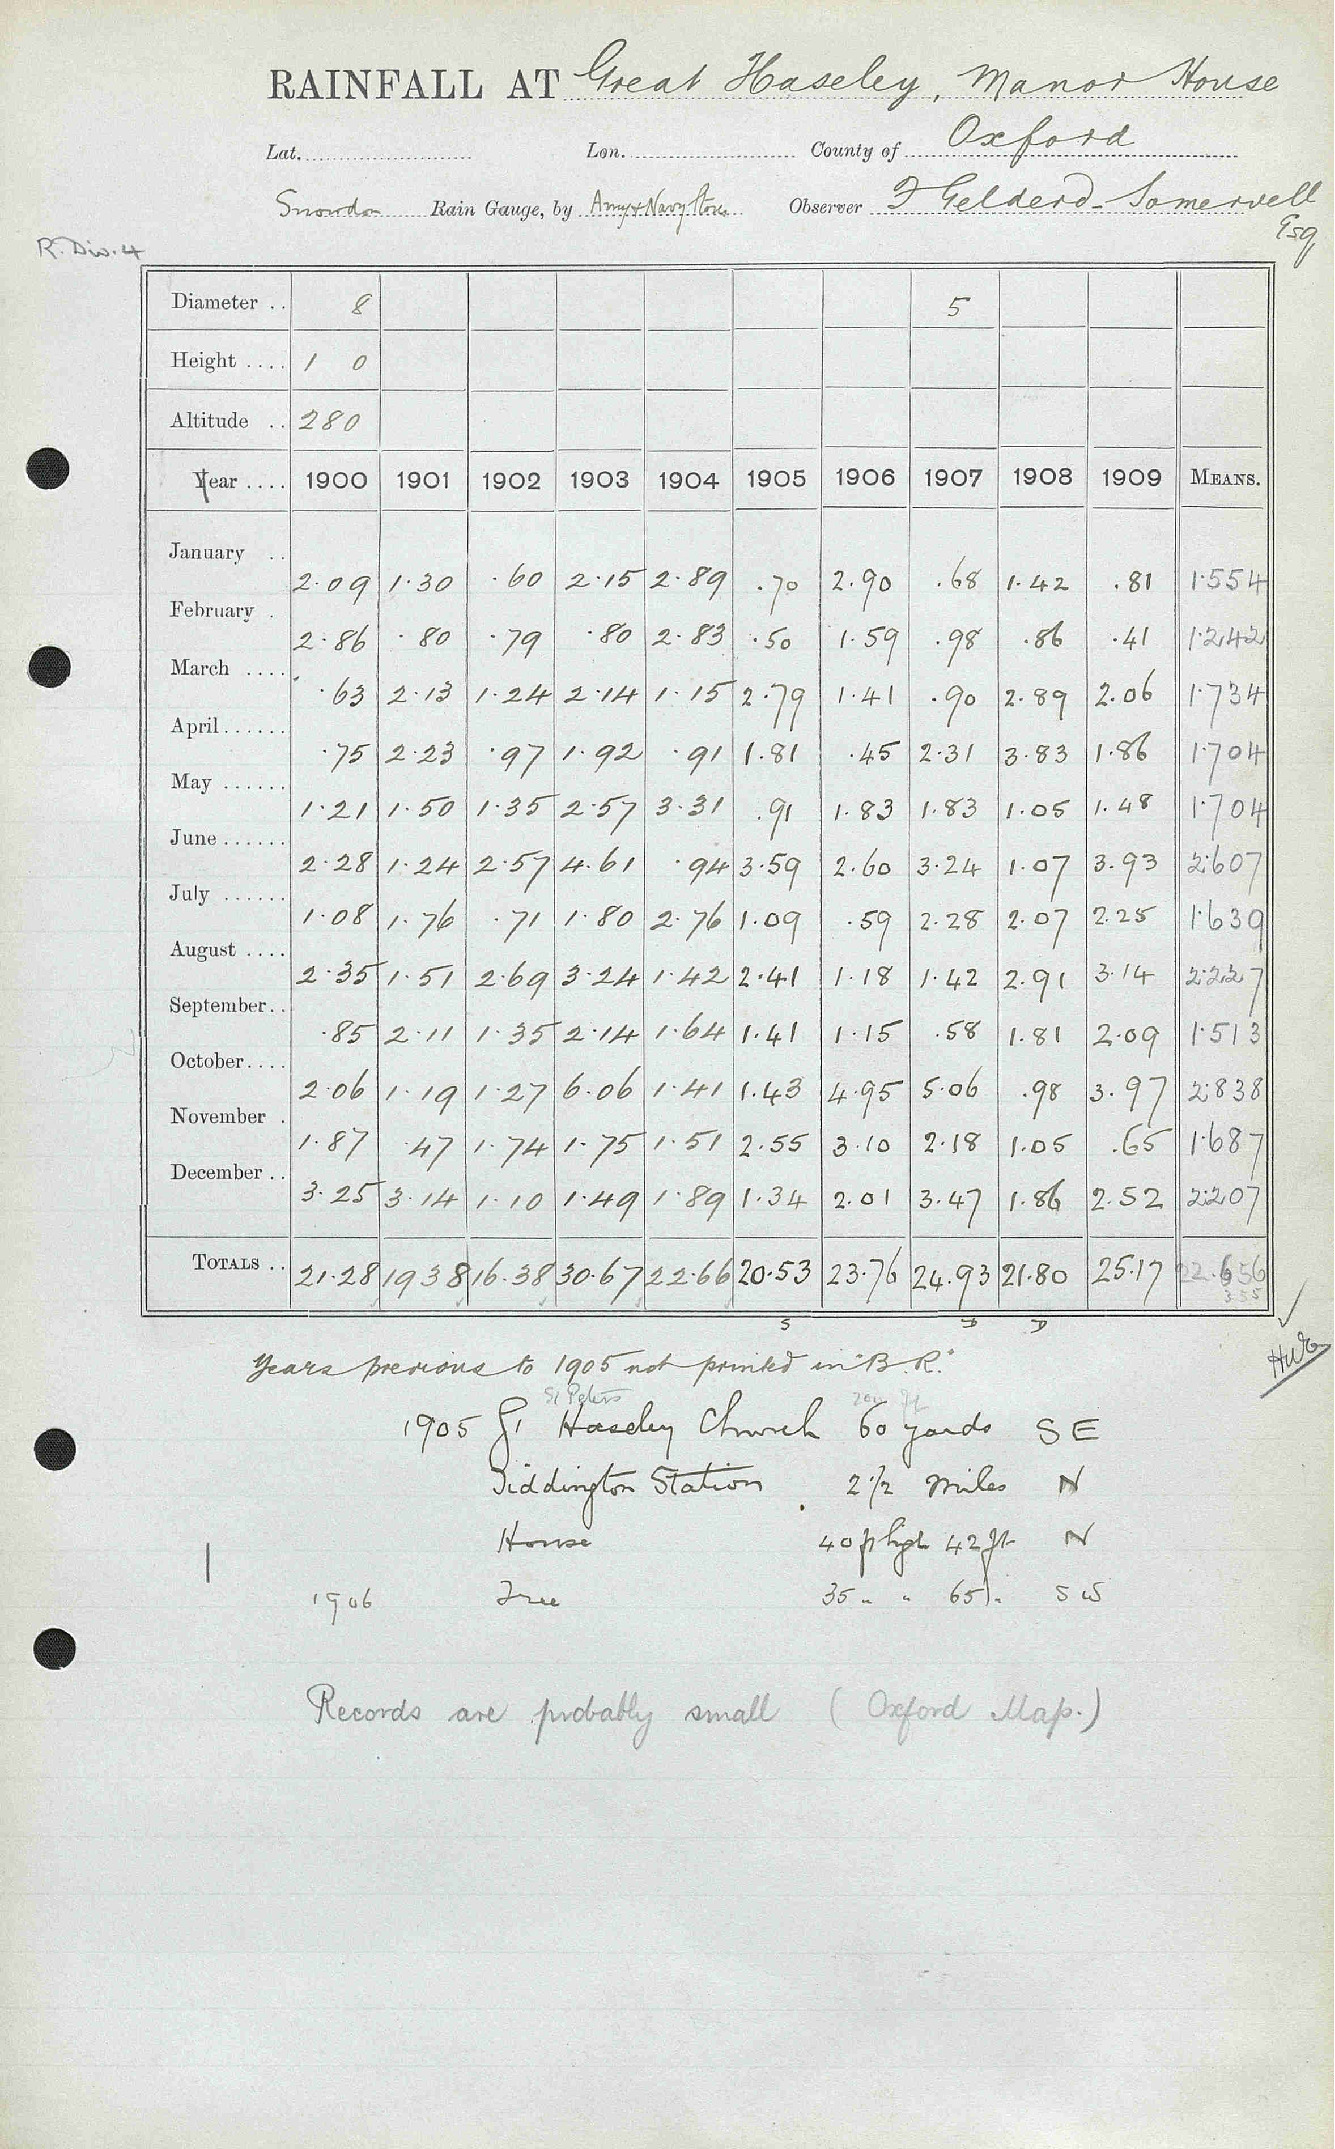 RAINFALL AT Great Haseley, Manor House
Lat. Lon. County of Oxford
Snowdon Rain Gauge, by Army & Navy Stores Observer F Gelderd-Somervell
Esq
R. Div. 4
Diameter .. 8 5
Height .... 1 0
Altitude .. 280
Year .... 1900 1901 1902 1903 1904 1905 1906 1907 1908 1909 MEANS.
January .. 2.09 1.30 .60 2.15 2.89 .70 2.90 .68 1.42 .81 1.554
February . 2.86 .80 .79 .80 2.83 .50 1.59 .98 .86 .41 1.242
March .... .63 2.13 1.24 2.14 1.15 2.79 1.41 .90 2.89 2.06 1.734
April...... .75 2.23 .97 1.92 .91 1.81 .45 2.31 3.83 1.86 1.704
May ...... 1.21 1.50 1.35 2.57 3.31 .91 1.83 1.83 1.05 1.48 1.704
June...... 2.28 1.24 2.57 4.61 .94 3.59 2.60 3.24 1.07 3.93 2.607
July ...... 1.08 1.76 .71 1.80 2.76 1.09 .59 2.28 2.07 2.25 1.639
August .... 2.35 1.51 2.69 3.24 1.42 2.41 1.18 1.42 2.91 3.14 2.227
September.. .85 2.11 1.35 2.14 1.64 1.41 1.15 .58 1.81 2.09 1.513
October.... 2.06 1.19 1.27 6.06 1.41 1.43 4.95 5.06 .98 3.97 2.838
November . 1.87 .47 1.74 1.75 1.51 2.55 3.10 2.18 1.05 .65 1.687
December .. 3.25 3.14 1.10 1.49 1.89 1.34 2.01 3.47 1.86 2.52 2.207
TOTALS .. 21.28 19.38 16.38 30.67 22.66 20.53 23.76 24.93 21.80 25.17 22.656
355
S D D
Years previous to 1905 not printed in "B.R."
St Peters
1905 Gt Haseley Church 60 yards SE
Tiddington Station 2 1/2 miles N
House 40 ft hgt 42 ft N
1906 Tree 35 " " 65 " SW
Records are probably small (Oxford Map.)